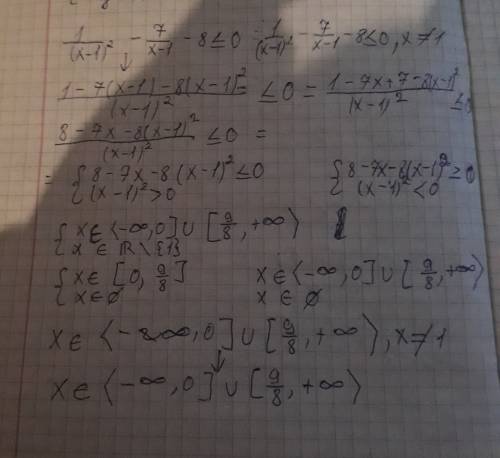 1/(x-1)² - 7/(x-1) - 8 ≤ 0 = 1/(x-1)² - 7/(x-1) - 8 ≤ 0, x ≠ 1
↓
(1 - 7(x-1) - 8(x-1)²=)/(x-1)² ≤ 0 = (1 - 7x + 7 - 8(x-1)²)/(x-1)² ≤ 0
(8 - 7x - 8(x-1)²)/(x-1)² ≤ 0 =
= { 8 - 7x - 8(x-1)² ≤ 0 { 8 - 7x - 8(x-1)² ≥ 0
(x-1)² > 0 (x-1)² < 0
{ x ∈ ⟨-∞, 0] ∪ [9/8, +∞⟩
x ∈ ℝ \ {1}
{ x ∈ [0, 9/8] x ∈ ⟨-∞, 0] ∪ [9/8, +∞⟩
x ∈ ∅ x ∈ ∅
x ∈ ⟨-∞, 0] ∪ [9/8, +∞⟩, x ≠ 1
↓
x ∈ ⟨-∞, 0] ∪ [9/8, +∞⟩